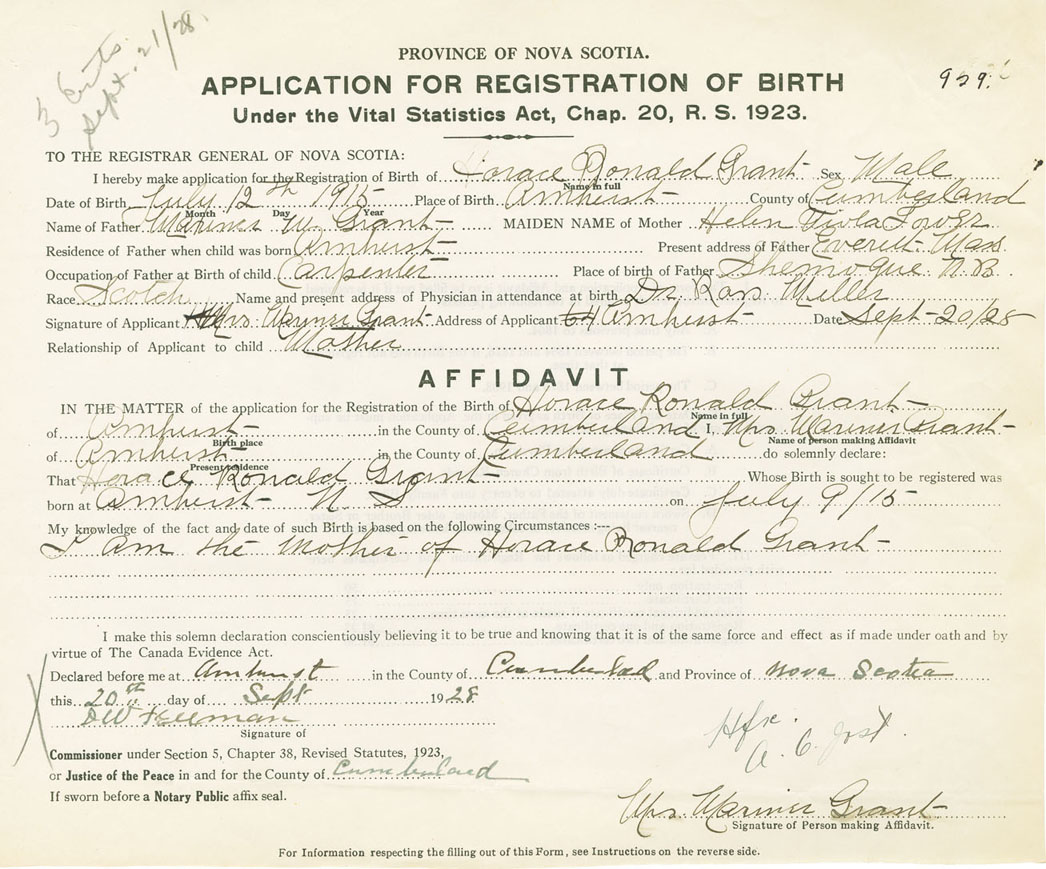 3 Certs.
Sept. 21/28.
PROVINCE OF NOVA SCOTIA.
APPLICATION FOR REGISTRATION OF BIRTH
959.
Under the Vital Statistics Act, Chap. 20, R. S. 1923.
TO THE REGISTRAR GENERAL OF NOVA SCOTIA:
I hereby make application for the Registration of Birth of Horace Ronald Grant Sex Male
Name in full
Date of Birth July 12th 1915 Place of Birth Amherst County of Cumberland
Month Day Year
Name of Father Mariner W. Grant MAIDEN NAME of Mother Helen Viola Tower
Residence of Father when child was born Amherst Present address of Father Everett Mass.
Occupation of Father at Birth of child Carpenter Place of birth of Father Shemogue N.B.
Race Scotch Name and present address of Physician in attendance at birth Dr. Ross Miller
Signature of Applicant Mrs. Mariner Grant Address of Applicant Amherst Date Sept 20/28
Relationship of Applicant to child Mother
AFFIDAVIT
IN THE MATTER of the application for the Registration of the Birth of Horace Ronald Grant
Name in full
of Amherst in the County of Cumberland I, Mrs Mariner Grant
Birth place Name of person making Affidavit
of Amherst in the County of Cumberland do solemnly declare:
Present residence
That Horace Ronald Grant Whose Birth is sought to be registered was
born at Amherst N S on July 9/15
My knowledge of the fact and date of such Birth is based on the following Circumstances :---
I am the Mother of Horace Ronald Grant
I make this solemn declaration conscientiously believing it to be true and knowing that it is of the same force and effect as if made under oath and by
virtue of The Canada Evidence Act.
Declared before me at Amherst in the County of Cumberland and Province of Nova Scotia
this 20th day of Sept 1928
DW Freeman
Signature of
Commissioner under Section 5, Chapter 38, Revised Statutes, 1923,
or Justice of the Peace in and for the County of Cumberland
If sworn before a Notary Public affix seal.
A. C. Jost.
Mrs. Mariner Grant
Signature of Person making Affidavit.
For Information respecting the filling out of this Form, see Instructions on the reverse side.